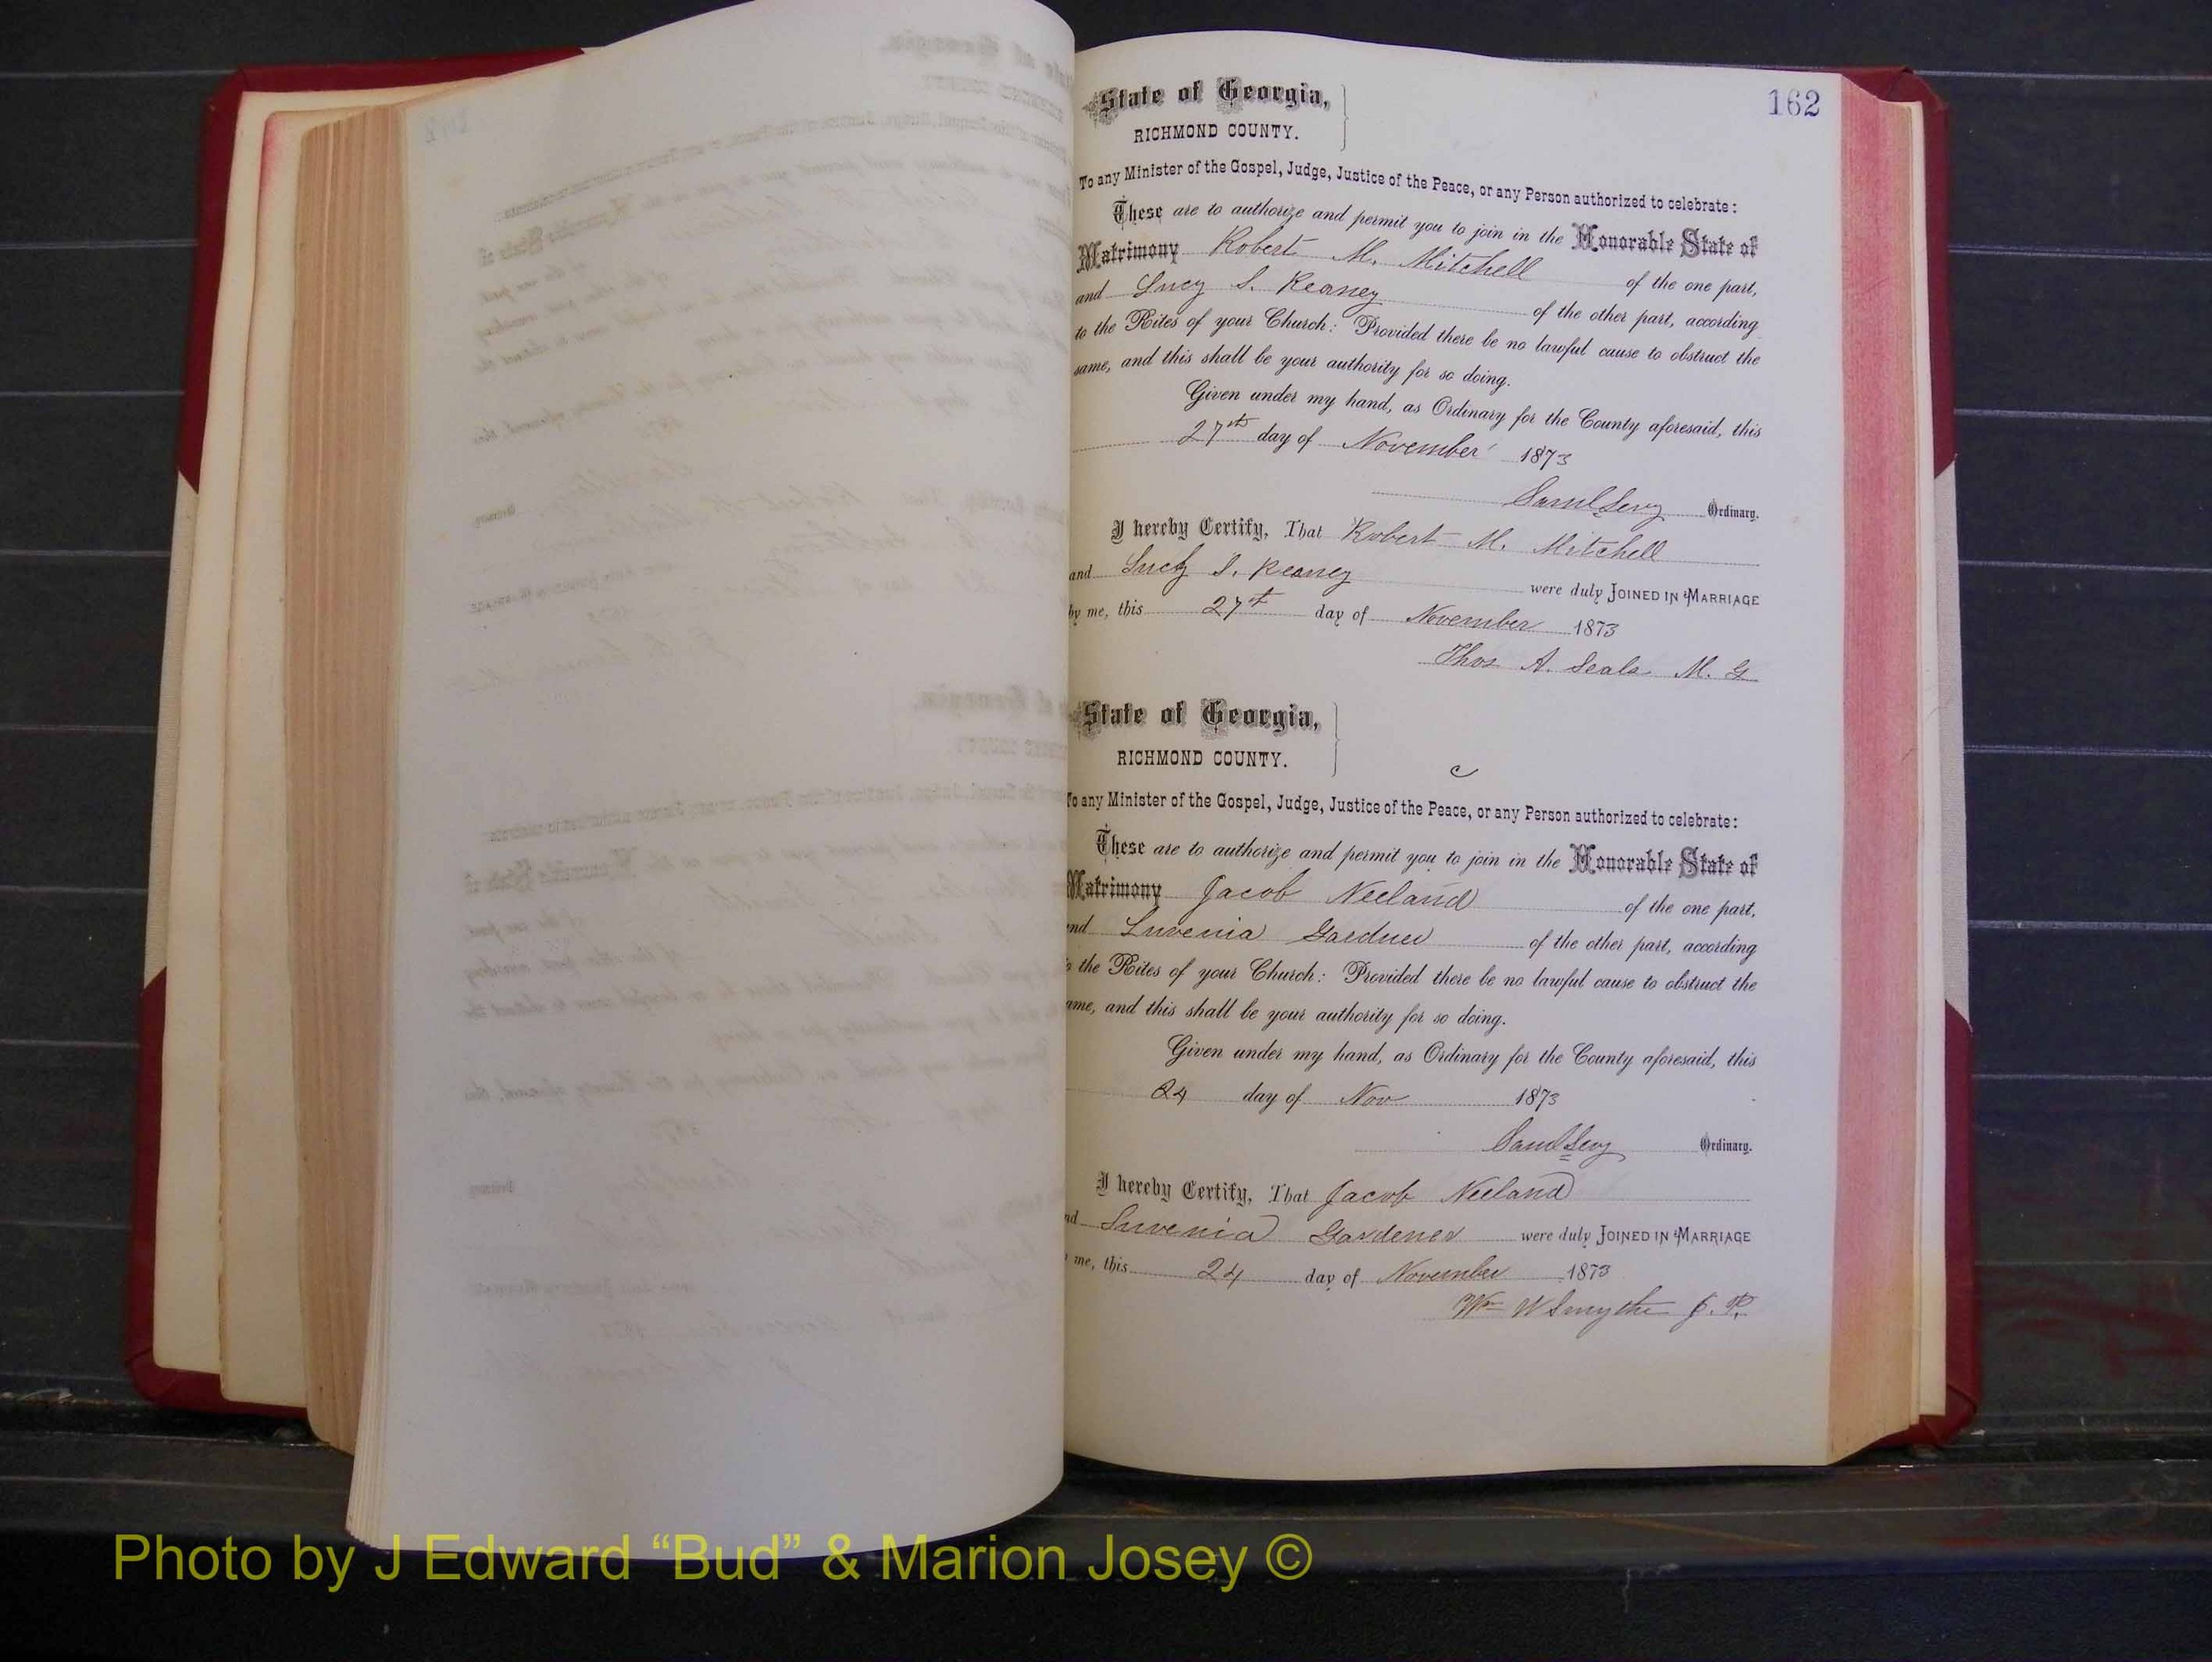 162
State of Georgia,
RICHMOND COUNTY.
To any Minister of the Gospel, Judge, Justice of the Peace, or any Person authorized to celebrate:
These are to authorize and permit you to join in the Honorable State of
Matrimony Robert M. Mitchell of the one part,
and Lucy S. Keaney of the other part, according
to the Rites of your Church: Provided there be no lawful cause to obstruct the
same, and this shall be your authority for so doing.
Given under my hand, as Ordinary for the County aforesaid, this
27th day of November 1873
Saml Levy Ordinary.
I hereby Certify, That Robert M. Mitchell
and Lucy S. Keaney were duly JOINED IN MARRIAGE
by me, this 27th day of November 1873
Thos A. Seals M. G
State of Georgia,
RICHMOND COUNTY.
c
To any Minister of the Gospel, Judge, Justice of the Peace, or any Person authorized to celebrate:
These are to authorize and permit you to join in the Honorable State of
Matrimony Jacob Neeland of the one part,
and Luvenia Gardner of the other part, according
to the Rites of your Church: Provided there be no lawful cause to obstruct the
ame, and this shall be your authority for so doing.
Given under my hand, as Ordinary for the County aforesaid, this
24 day of Nov 1873
Saml Levy Ordinary.
I hereby Certify, That Jacob Neeland
nd Luvenia Gardener were duly JOINED IN MARRIAGE
me, this 24 day of November 1873
Wm W Smythe J. P.
Photo by J Edward “Bud” & Marion Josey ©